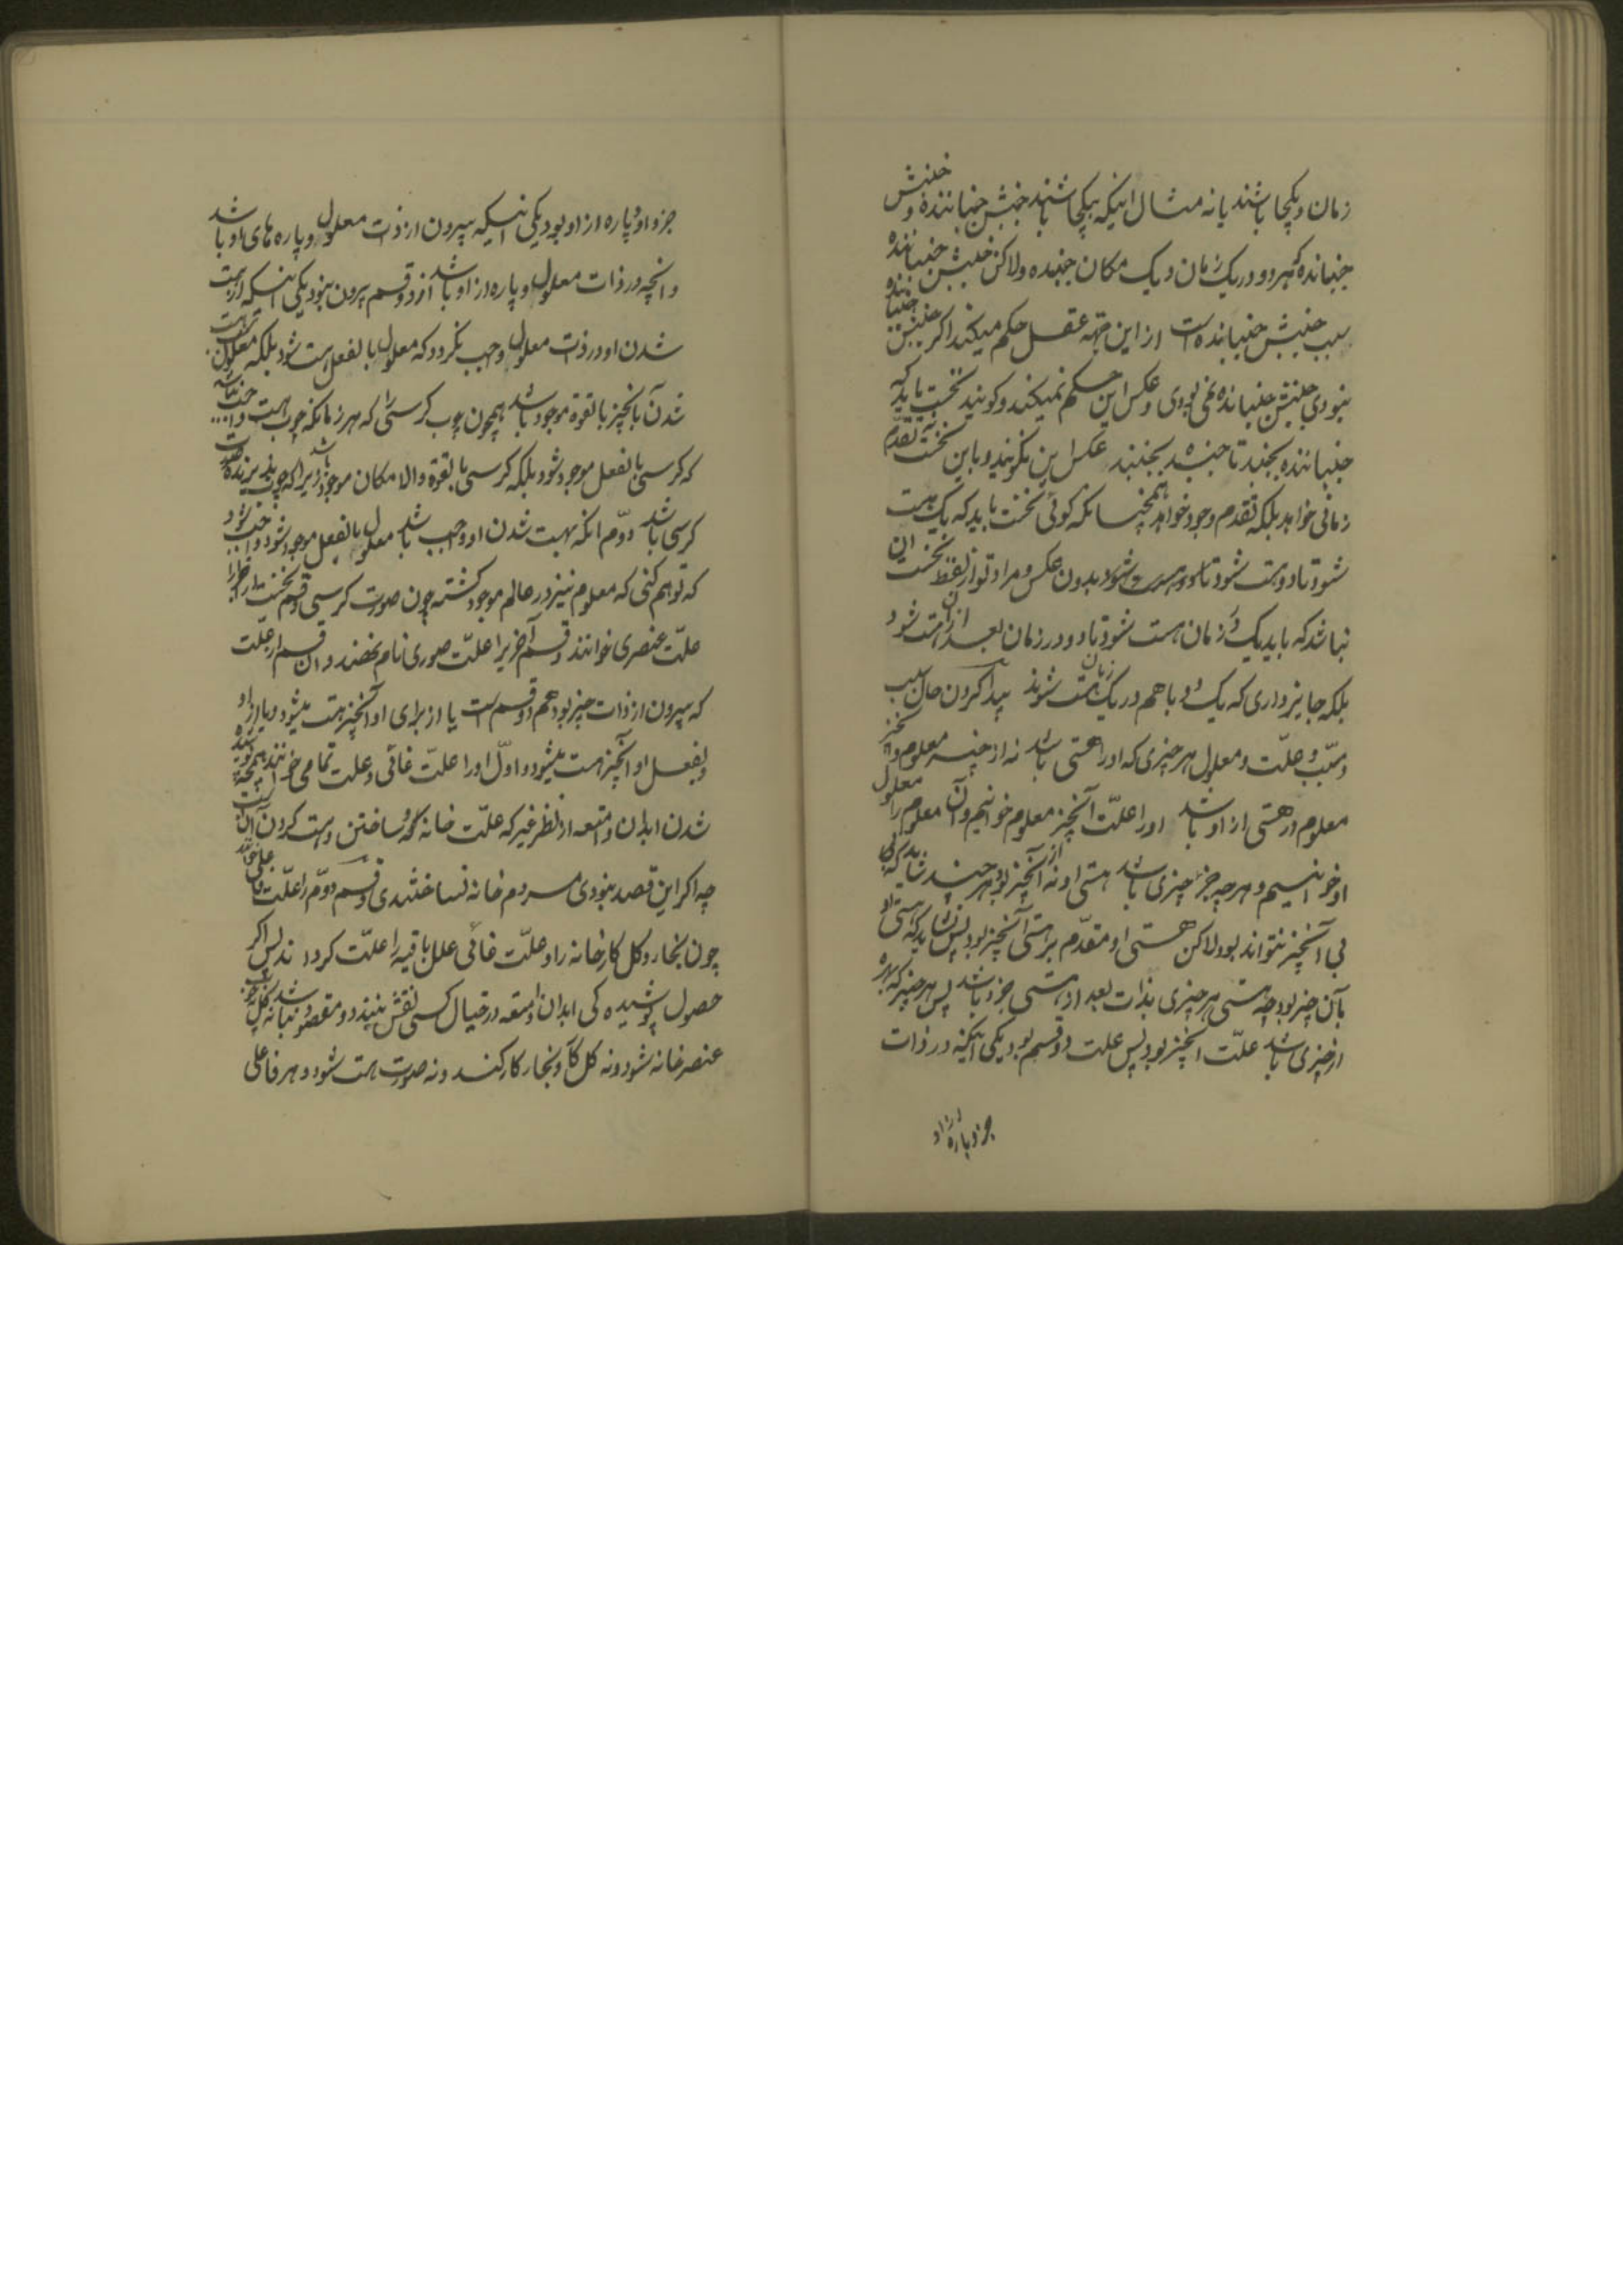 زمان و یکجا باشند یا نه مثال اینکه بیکجا باشند جنبش جنباننده و جنبش
جنبانده که هر دو در یک زمان و یک مکان جنبیده ولاکن جنبش جنباننده
سبب جنبش جنبانده است از این جهه عقل حکم میکند اکر جنبش جنباننده
نبودی جنبش جنبانده نمی بودی و عکس این حکم نمیکند و کویند نخست باید که
جنباننده بجنبد تا جنبنده بجنبد عکس این نکویند و باین نخست نه تقدم
زمانی خواهد بلکه تقدم وجود خواهد همچنانکه کوئی نخست باید که یک هست
شود تا دو هست شود بدون عکس و مراد تو از لفظ نخست این
نباشد که باید یک در زمان هست شود تا دو در زمان بعد از آن هست شود
بلکه جایز داری که یک و دو با هم در یک زمان هست شوند پیدا کردن حال سبب
و مسبب و علت و معلول هر چیزی که او را هستی باشد نه از چیز معلوم و آنچیز
معلوم را هستی از او باشد او را علت آنچیز معلوم خوانیم و آن معلوم را معلول
او خوانیم و هر چه جزء چیزی باشد هستی او نه از آنچیز بود هر چند شاید که
بی آنچیز نتواند بود لاکن هستی او مقدم بر هستی آنچیز بود پس نشاید که هستی او
بآن چیز بود چه هستی هر چیزی بذات بعد از هستی جزء باشد پس هر چیز که پاره
از چیزی باشد علت آنچیز بود پس علت دو قسم بود یکی اینکه در ذات
جزء و پاره از او
جزء او و پاره از او بود یکی اینکه بیرون از ذات معلول و پاره های او باشد
و انچه در ذات معلول و پاره از او باشد از دو قسم بیرون نبود یکی اینکه از هست
شدن او در ذات معلول واجب نکردد که معلول بالفعل هست شود بلکه
شدن آنچیز بالقوة موجود باشد همچون چوب کرسی را که هر زمانکه چوب هست واجب نباشد
که کرسی بالفعل موجود شود بلکه کرسی بالقوة والامکان موجود باشد زیرا که چوب پذیرنده صورت
کرسی باشد دوم انکه بهست شدن او واجب باشد معلول بالفعل موجود شود
که توهم کنی که معلوم نیز در عالم موجود کشته چون صورت کرسی و قسم نخست را
علت عنصری خوانند و قسم آخر را علت صوری نام نهند و ان قسم از علت
که بیرون از ذات چیز بود هم دو قسم است یا از برای او آنچیز هست میشود و یا از او
و بفعل او آنچیز هست میشود و اول او را علت غائی و علت تمامی خوانند همچو پوشیده
شدن ابدان و امتعه از نظر غیر که علت خانه و ساختن و هست کردن آن است
چه اکر این قصد نبودی مردم خانه نساختندی و قسم دوم را علت فاعلی خوانند
چون نجار و کل کار خانه را و علت غائی علل باقیه را علت کردانند پس اکر
حصول پوشیده کی ابدان و امتعه در خیال کسی نقش نبندد و مقصود نباشد نه کل
عنصر خانه شود و نه کل کار و نجار کار کنند و نه صورت هست شود و هر فاعلی